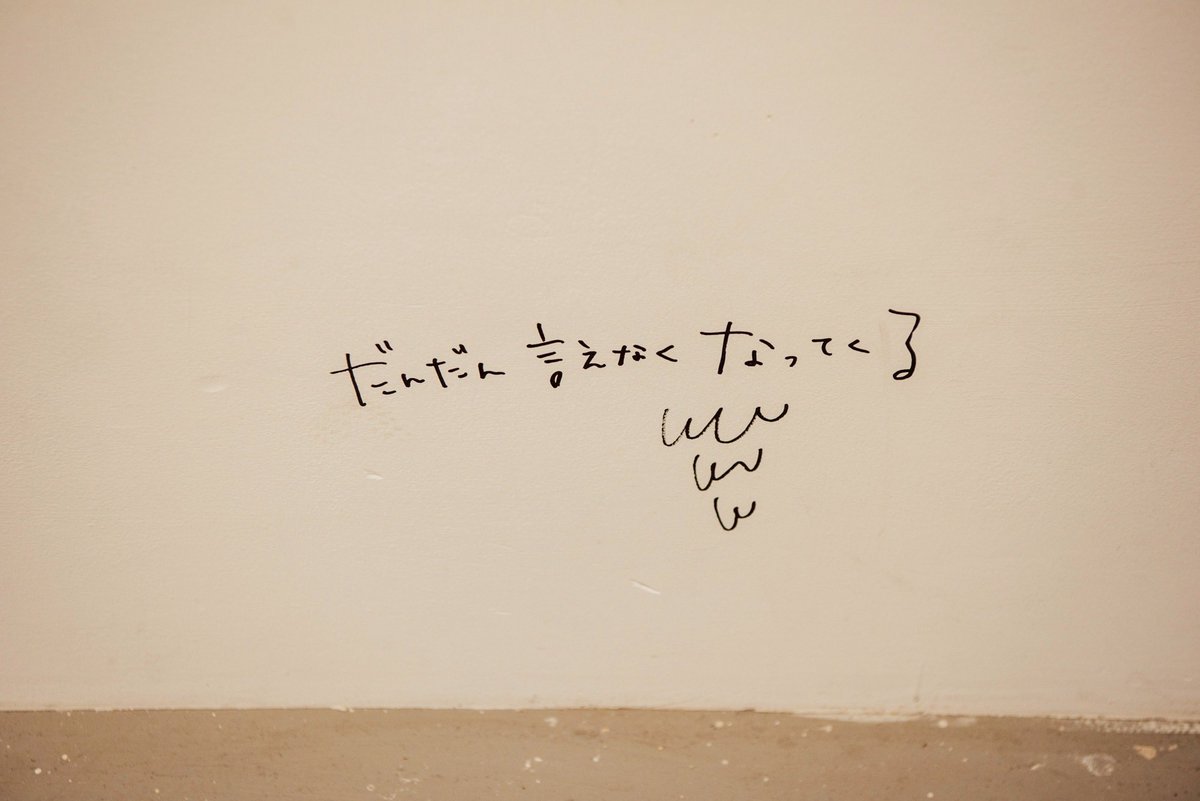 だんだん言えなくなってく3